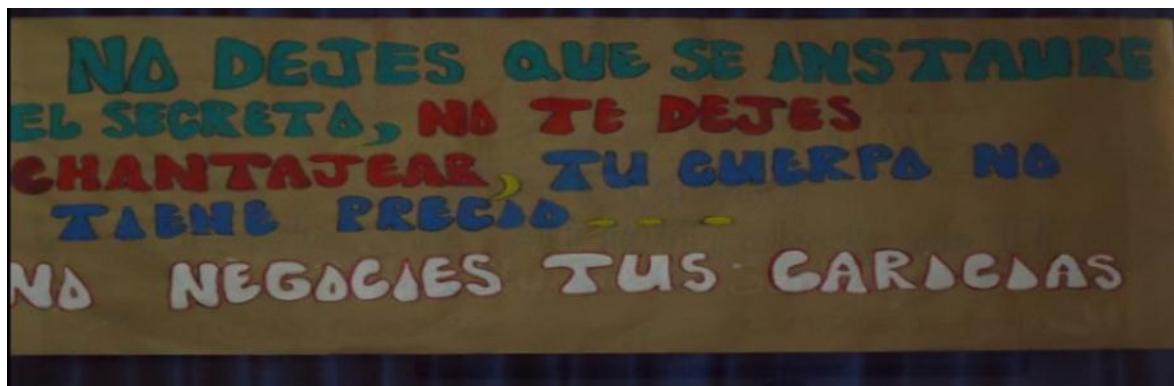 NO DEJES QUE SE INSTAURE
EL SECRETO, NO TE DEJES
CHANTAJEAR, TU CUERPO NO
TIENE PRECIO - - -
NO NEGOCIES TUS CARICIAS